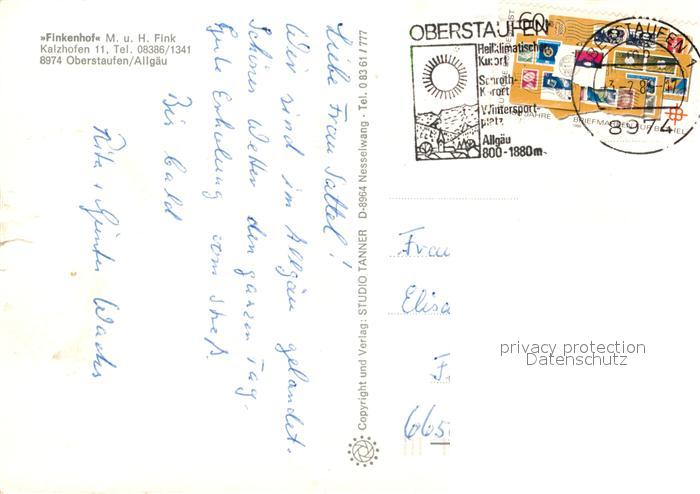 »Finkenhof« M. u. H. Fink
Kalzhofen 11, Tel. 08386/1341
8974 Oberstaufen/Allgäu
Liebe Frau Sattel!
Wir sind im Allgäu gelandet.
Schönes Wetter den ganzen Tag.
Gute Erholung vom Streß.
Bis bald
Rita + Günter Wachs
Copyright und Verlag: STUDIO TANNER D-8964 Nesselwang · Tel. 0 83 61 / 777
OBERSTAUFEN
Heilklimatischer
Kurort
Schroth-
Kurort
Wintersport-
platz
Allgäu
800-1880m
60
BRIEFMARKEN FÜR BETHEL
OBERSTAUFEN 1
8974
Frau
Elisa
665
privacy protection
Datenschutz